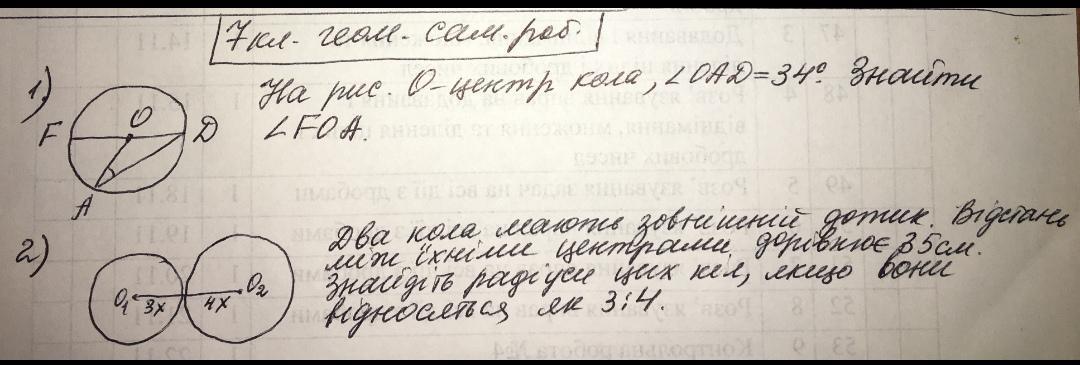 7кл. геом. сам. роб.
1) На рис. О-центр кола, ∠OAD=34°. Знайти
∠FOA.
F O D
A
2) Два кола мають зовнішній дотик. Відстань
між їхніми центрами дорівнює 35см.
Знайдіть радіуси цих кіл, якщо вони
відносяться, як 3:4.
O₁ 3x 4x O₂
47 3 Додавання і 14.11
48 4 Розв'язування вправ на додавання і 1
віднімання, множення та ділення
дробових чисел
49 5 Розв'язування задач на всі дії з дробами 1 18.11
1 19.11
20.11
52 8 Розв'язування
53 9 Контрольна робота №4 1 22.11